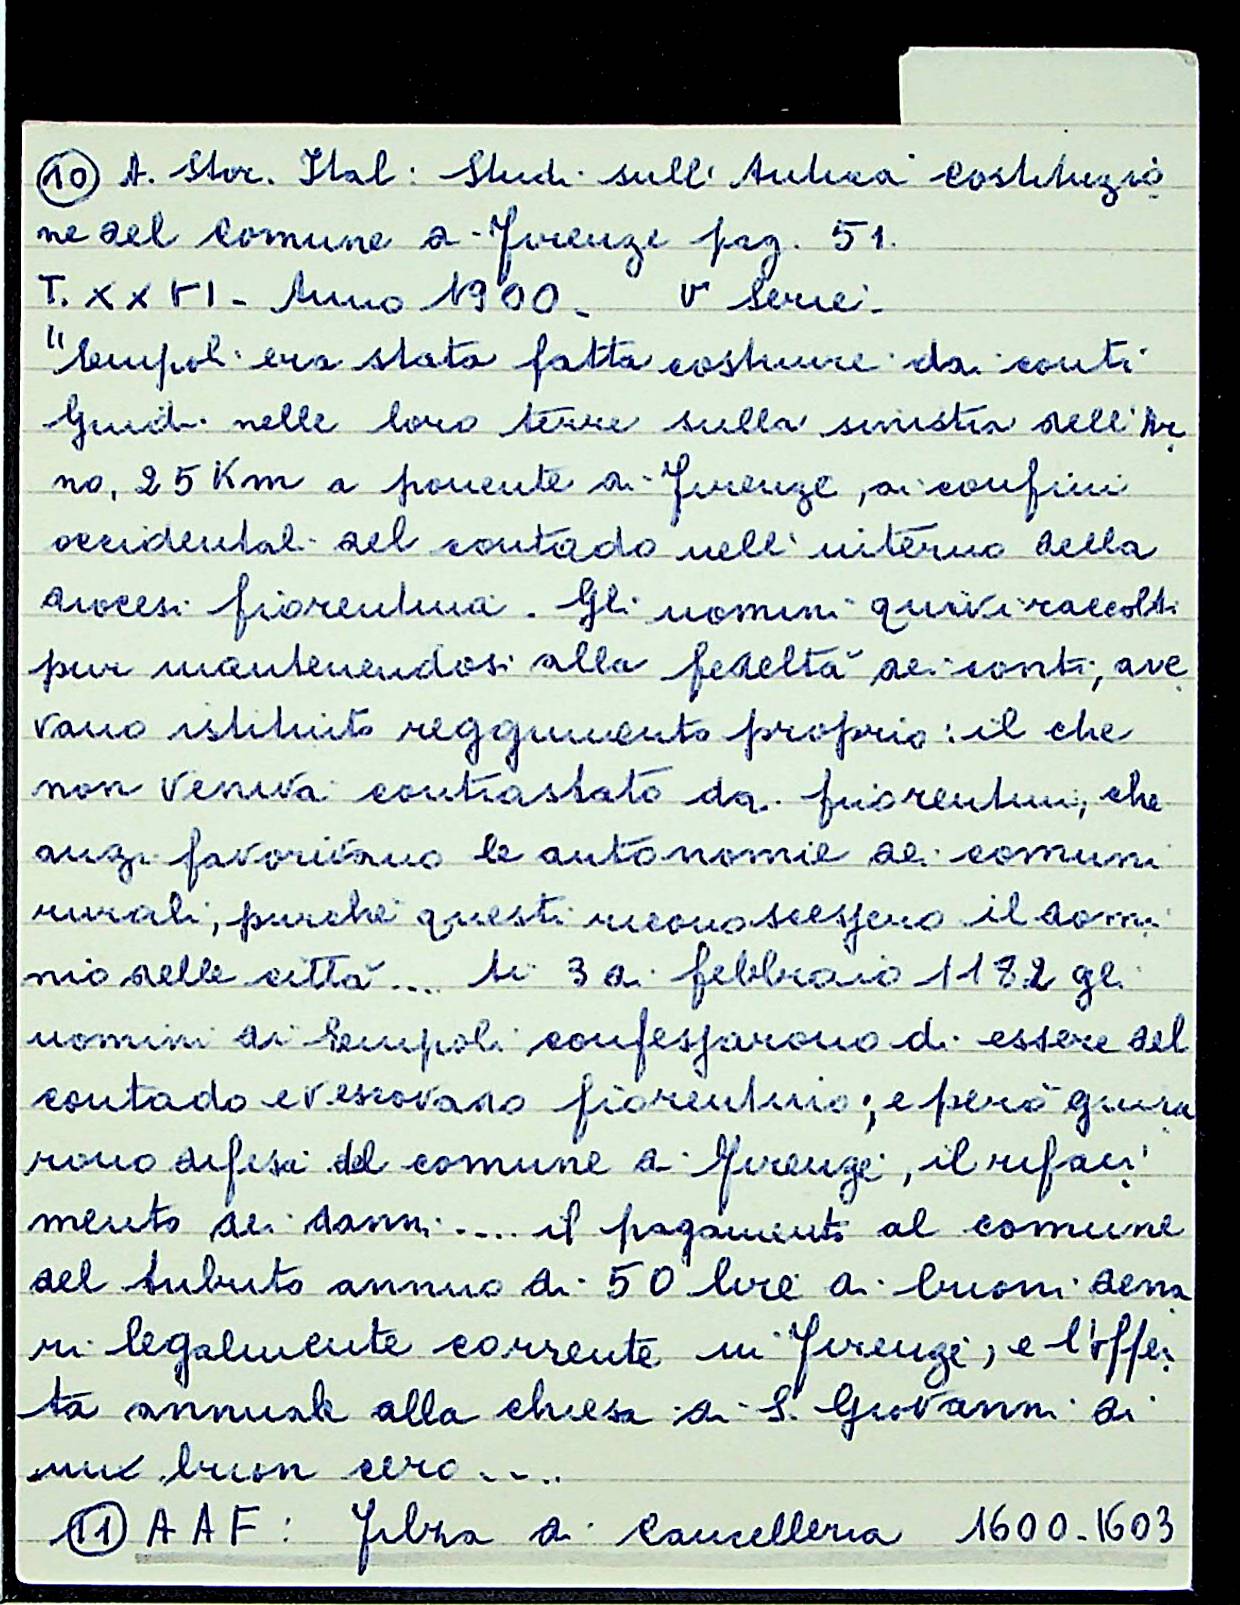 ⑩ A. Stor. Ital: Studi sull' Antica costituzio
ne del Comune di Firenze pag. 51.
T. XXVI - Anno 1900. V Serie.
"Empoli era stata fatta costruire dai conti
Guidi nelle loro terre sulla sinistra dell'Ar
no, 25 Km a ponente di Firenze, ai confini
occidentali del contado nell'interno della
diocesi fiorentina. Gli uomini quivi raccolti
pur mantenendosi alla fedeltà dei conti, ave
vano istituito reggimento proprio: il che
non veniva contrastato dai fiorentini, che
anzi favorivano le autonomie dei comuni
rurali, purché questi riconoscessero il domi
nio delle città.... Li 3 di febbraio 1182 gli
uomini di Empoli confessarono di essere del
contado e vescovado fiorentino; e però giura
rono difesa del comune di Firenze, il rifaci
mento dei danni.... il pagamento al comune
del tributo annuo di 50 lire di buoni dena
ri legalmente corrente in Firenze, e l'offer
ta annuale alla chiesa di S. Giovanni di
un buon cero....
⑪ AAF: Filza di Cancelleria 1600-1603